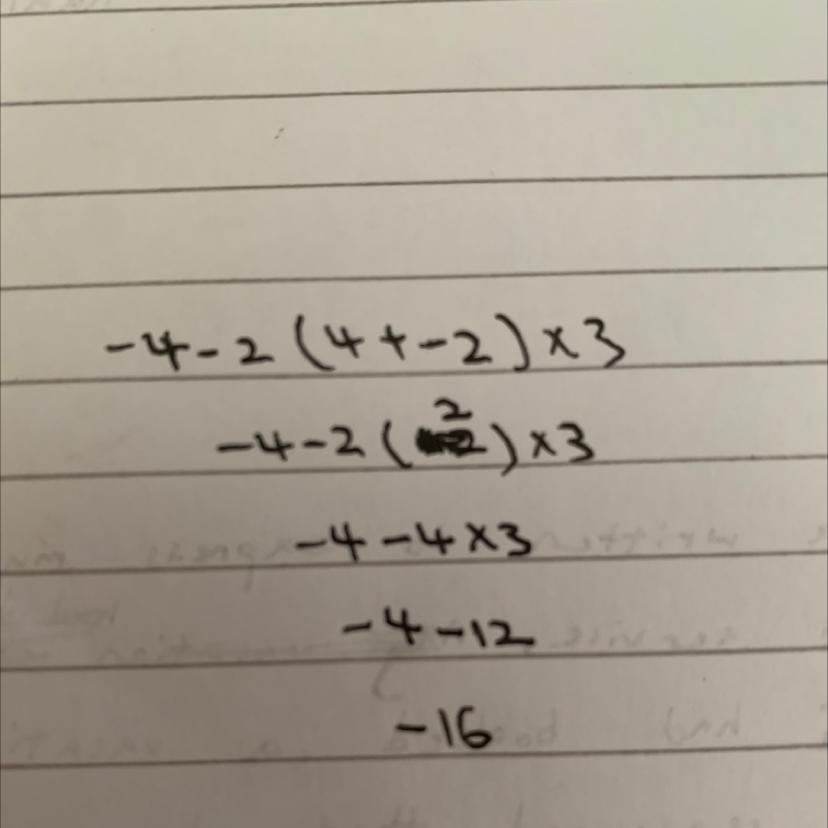 -4-2(4+-2)×3
-4-2(2)×3
-4-4×3
-4-12
-16